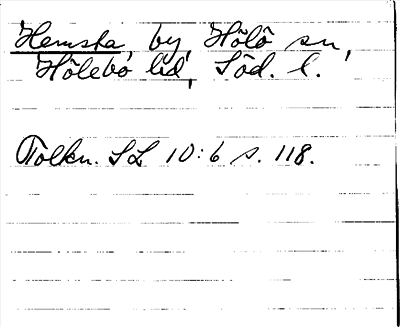 Hemska, by, Hölö sn,
Hölebo hd, Söd. l.
Tolkn. SL 10:6 s. 118.